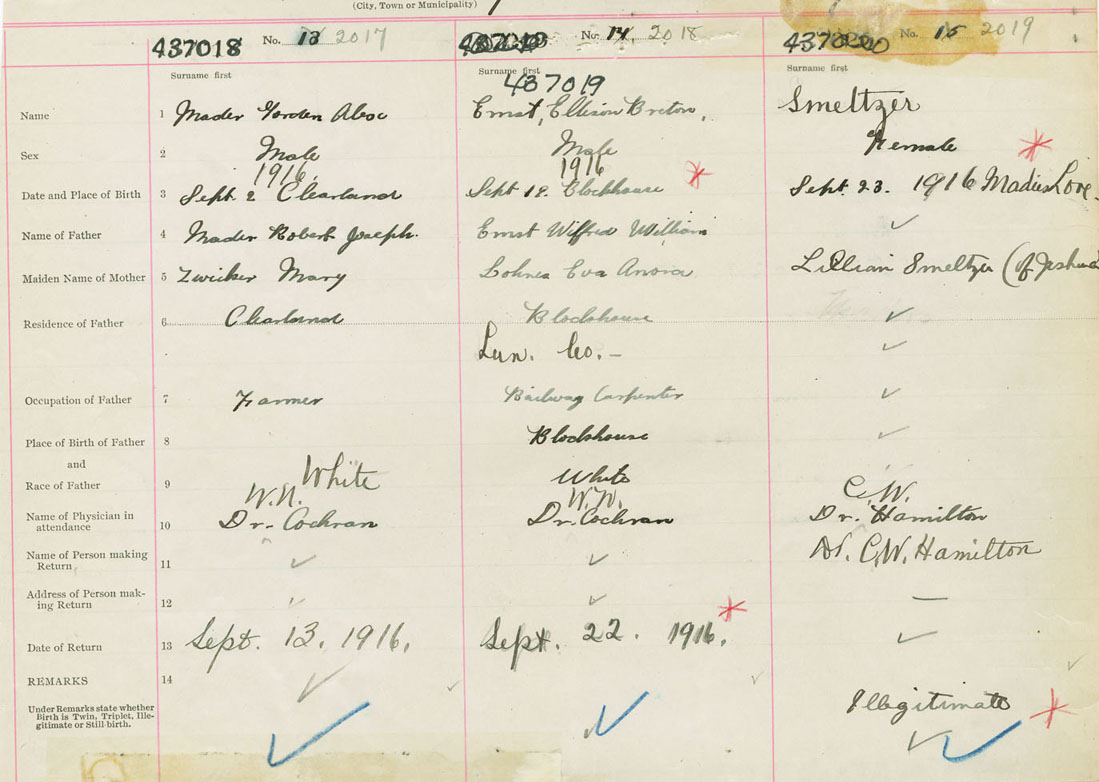 (City, Town or Municipality)
437018 No. 13 2017 No. 14, 2018 No. 15 2019
Surname first Surname first Surname first
437019
Name 1 Mader Gorden Ernst, Ellison Breton, Smeltzer
Sex 2 Male Male Female
1916. 1916
Date and Place of Birth 3 Sept 2 Clearland Sept 12. Blockhouse Sept 23. 1916 Maders Cove
Name of Father 4 Mader Robert Joseph. Ernst Wilfred William
Maiden Name of Mother 5 Zwicker Mary Lohnes Eva Lillian Smeltzer (of
Residence of Father 6 Clearland Blockhouse
Lun. Co. -
Occupation of Father 7 Farmer Railway Carpenter
Place of Birth of Father 8 Blockhouse
and
Race of Father 9 White White
W.N. W.N. C.W.
Name of Physician in attendance 10 Dr. Cochran Dr. Cochran Dr. Hamilton
Name of Person making Return 11 Dr. C.W. Hamilton
Address of Person mak-ing Return 12 —
Date of Return 13 Sept. 13. 1916. Sept. 22. 1916.
REMARKS 14
Under Remarks state whether Birth is Twin, Triplet, Ille-gitimate or Still-birth. Illegitimate